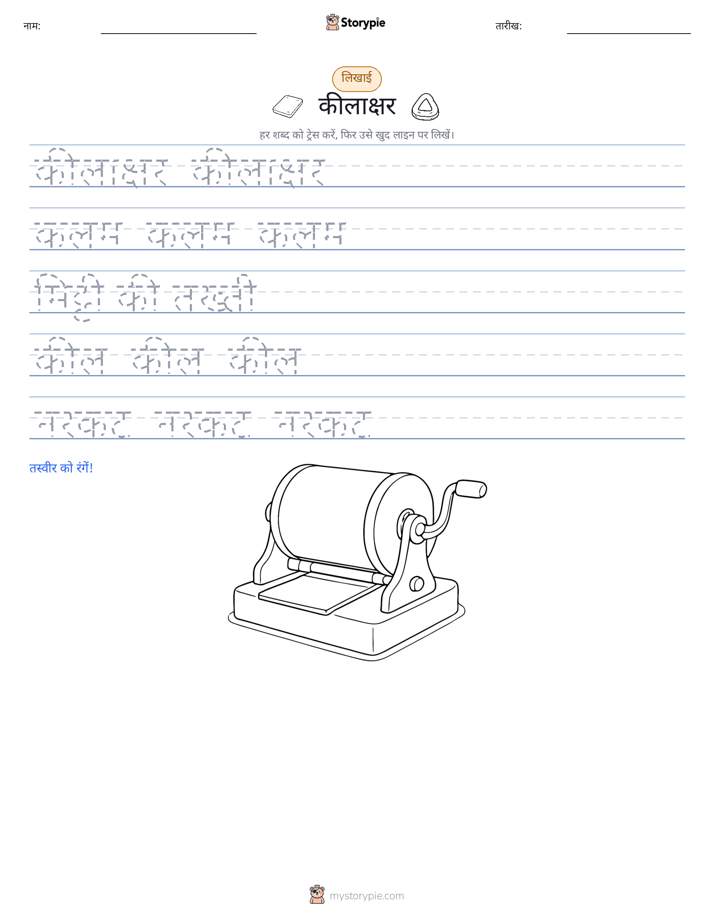 नाम:
Storypie
तारीख:
लिखाई
कीलाक्षर
हर शब्द को ट्रेस करें, फिर उसे खुद लाइन पर लिखें।
कीलाक्षर कीलाक्षर
कलम कलम कलम
मिट्टी की तख़्ती
कील कील कील
नरकट नरकट नरकट
तस्वीर को रंगें!
mystorypie.com